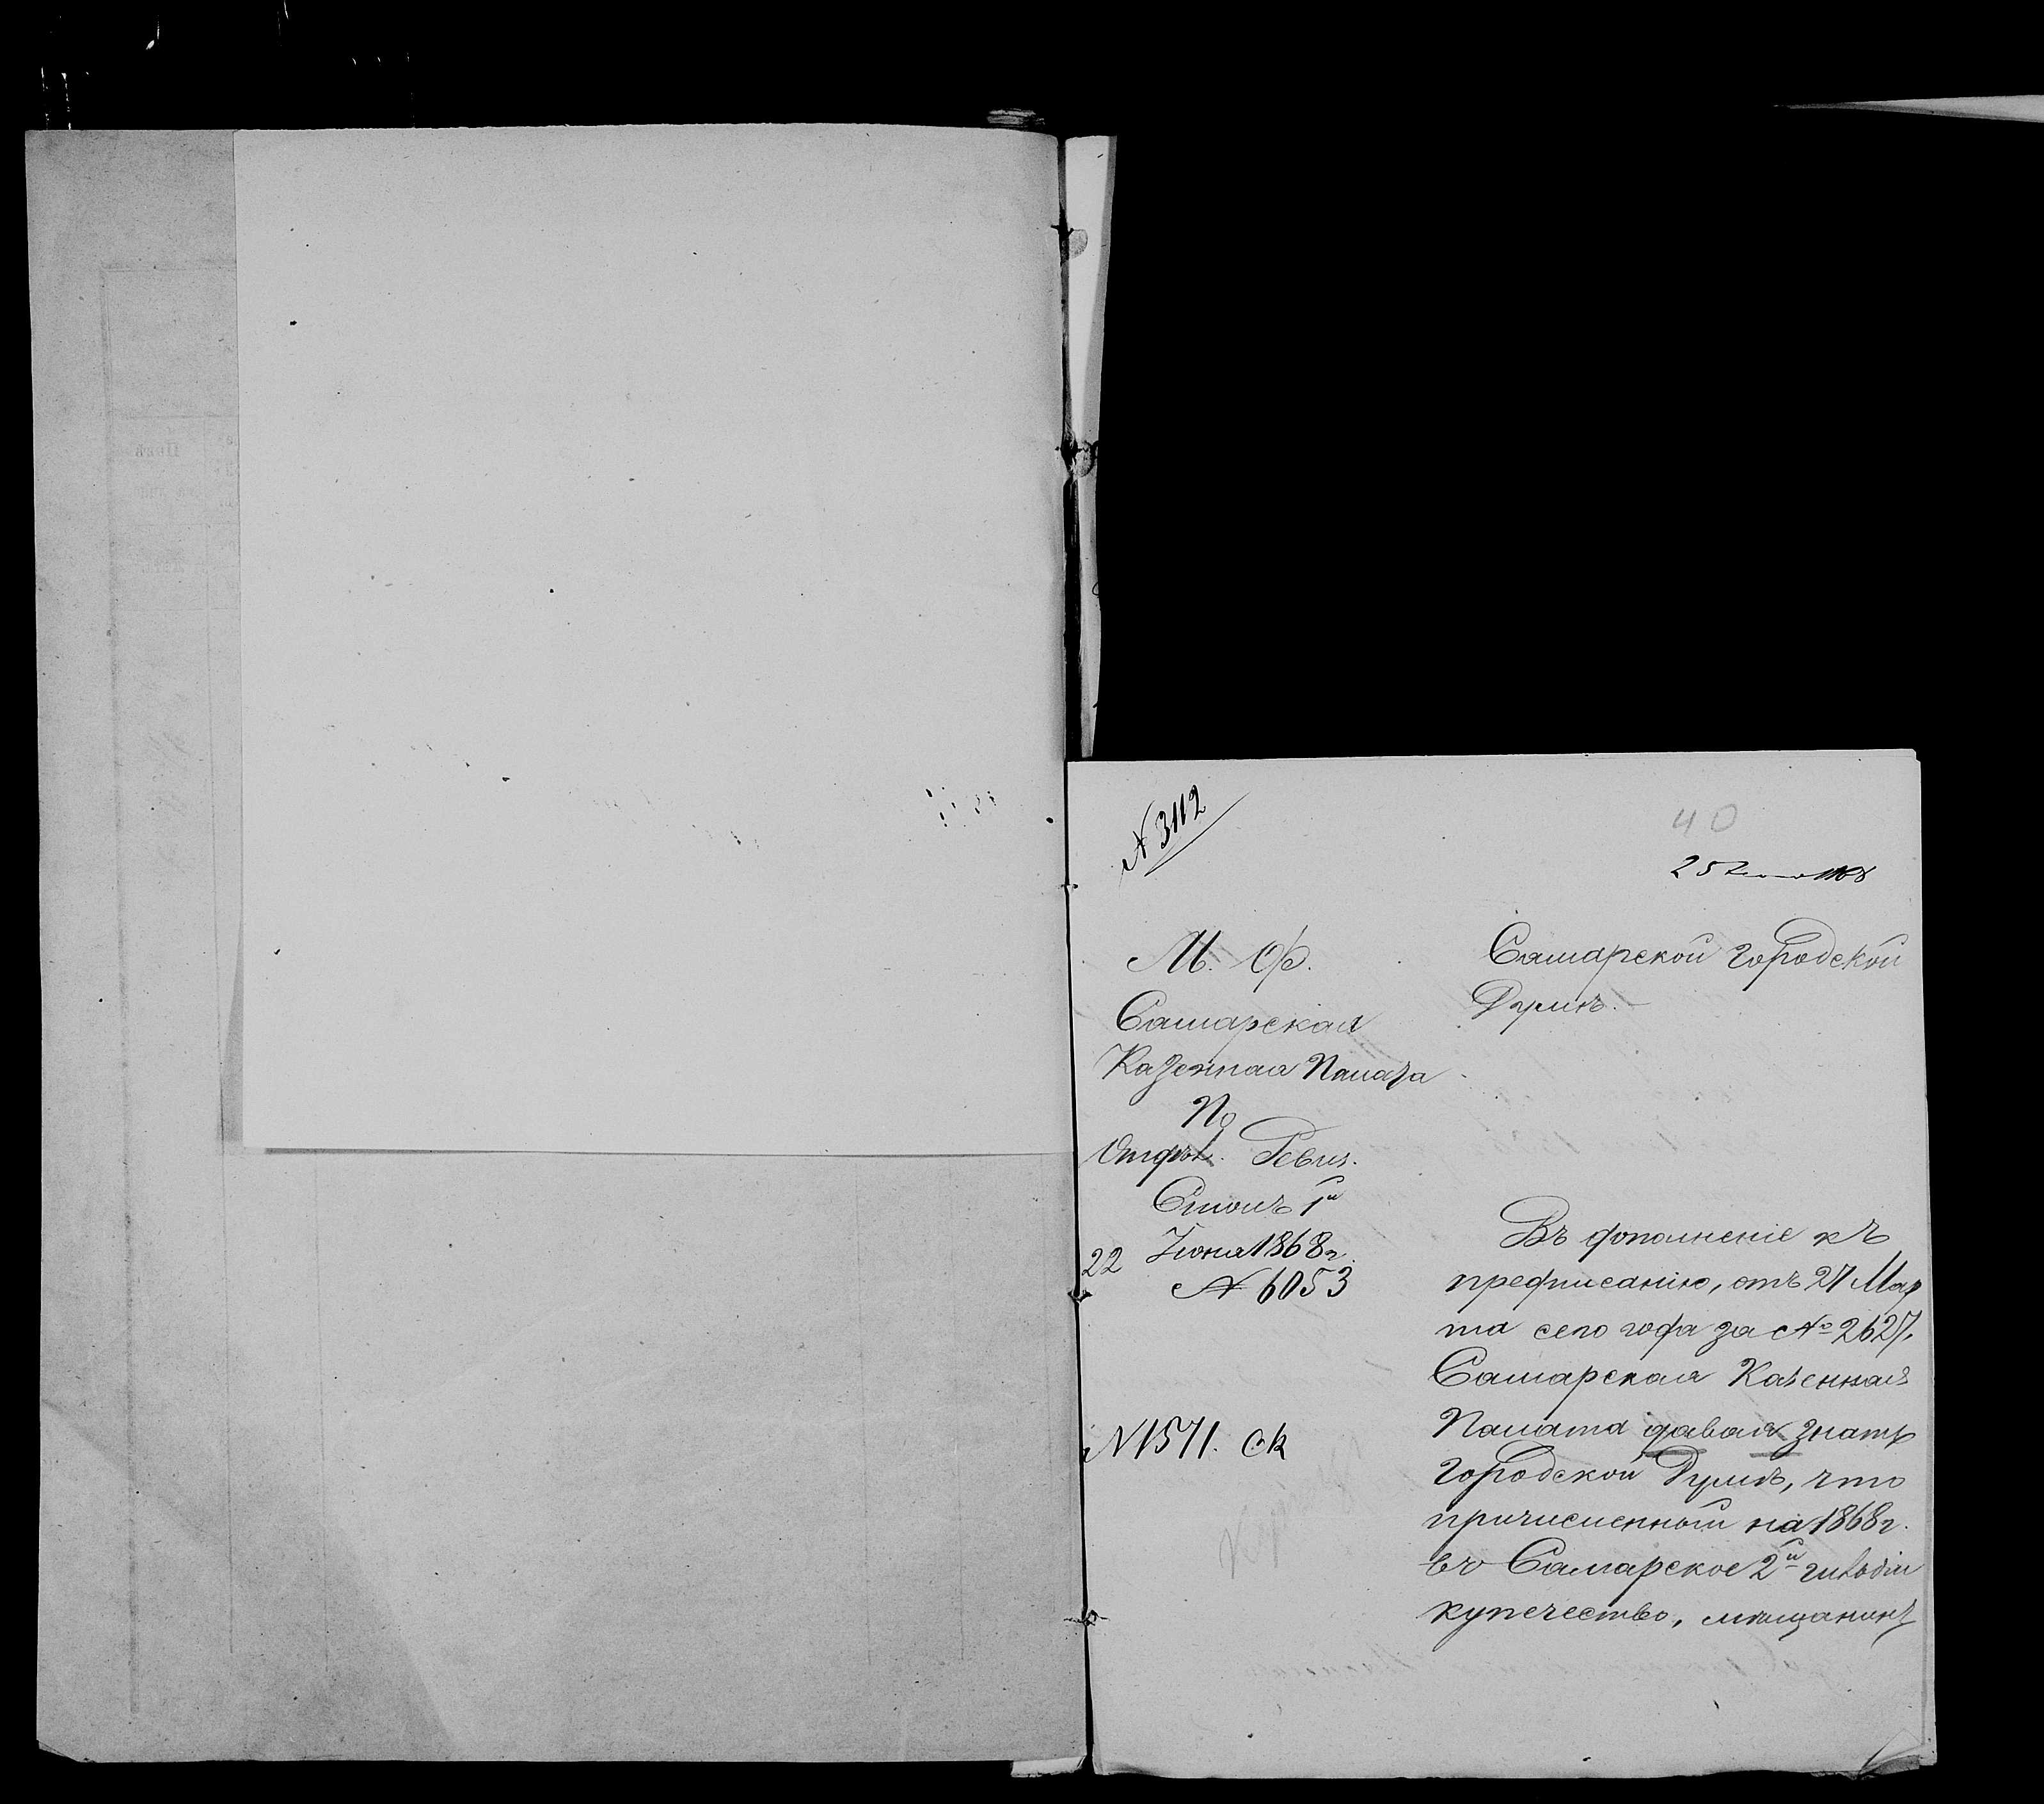 № 3112
40
25 Июня 1868
М. Ф.
Самарская
Казенная Палата
По
Отдѣл. Ревиз.
Столъ 1й
22 Июня 1868 г.
№ 6053
№ 1571. ск
Самарской Городской
Думѣ.
Въ дополненіе къ
предписанію, отъ 27 Мар
та сего года за № 2627,
Самарская Казенная
Палата давая знать
Городской Думѣ, что
причисленный на 1868 г.
въ Самарское 2й гильдіи
купечество, мѣщанинъ